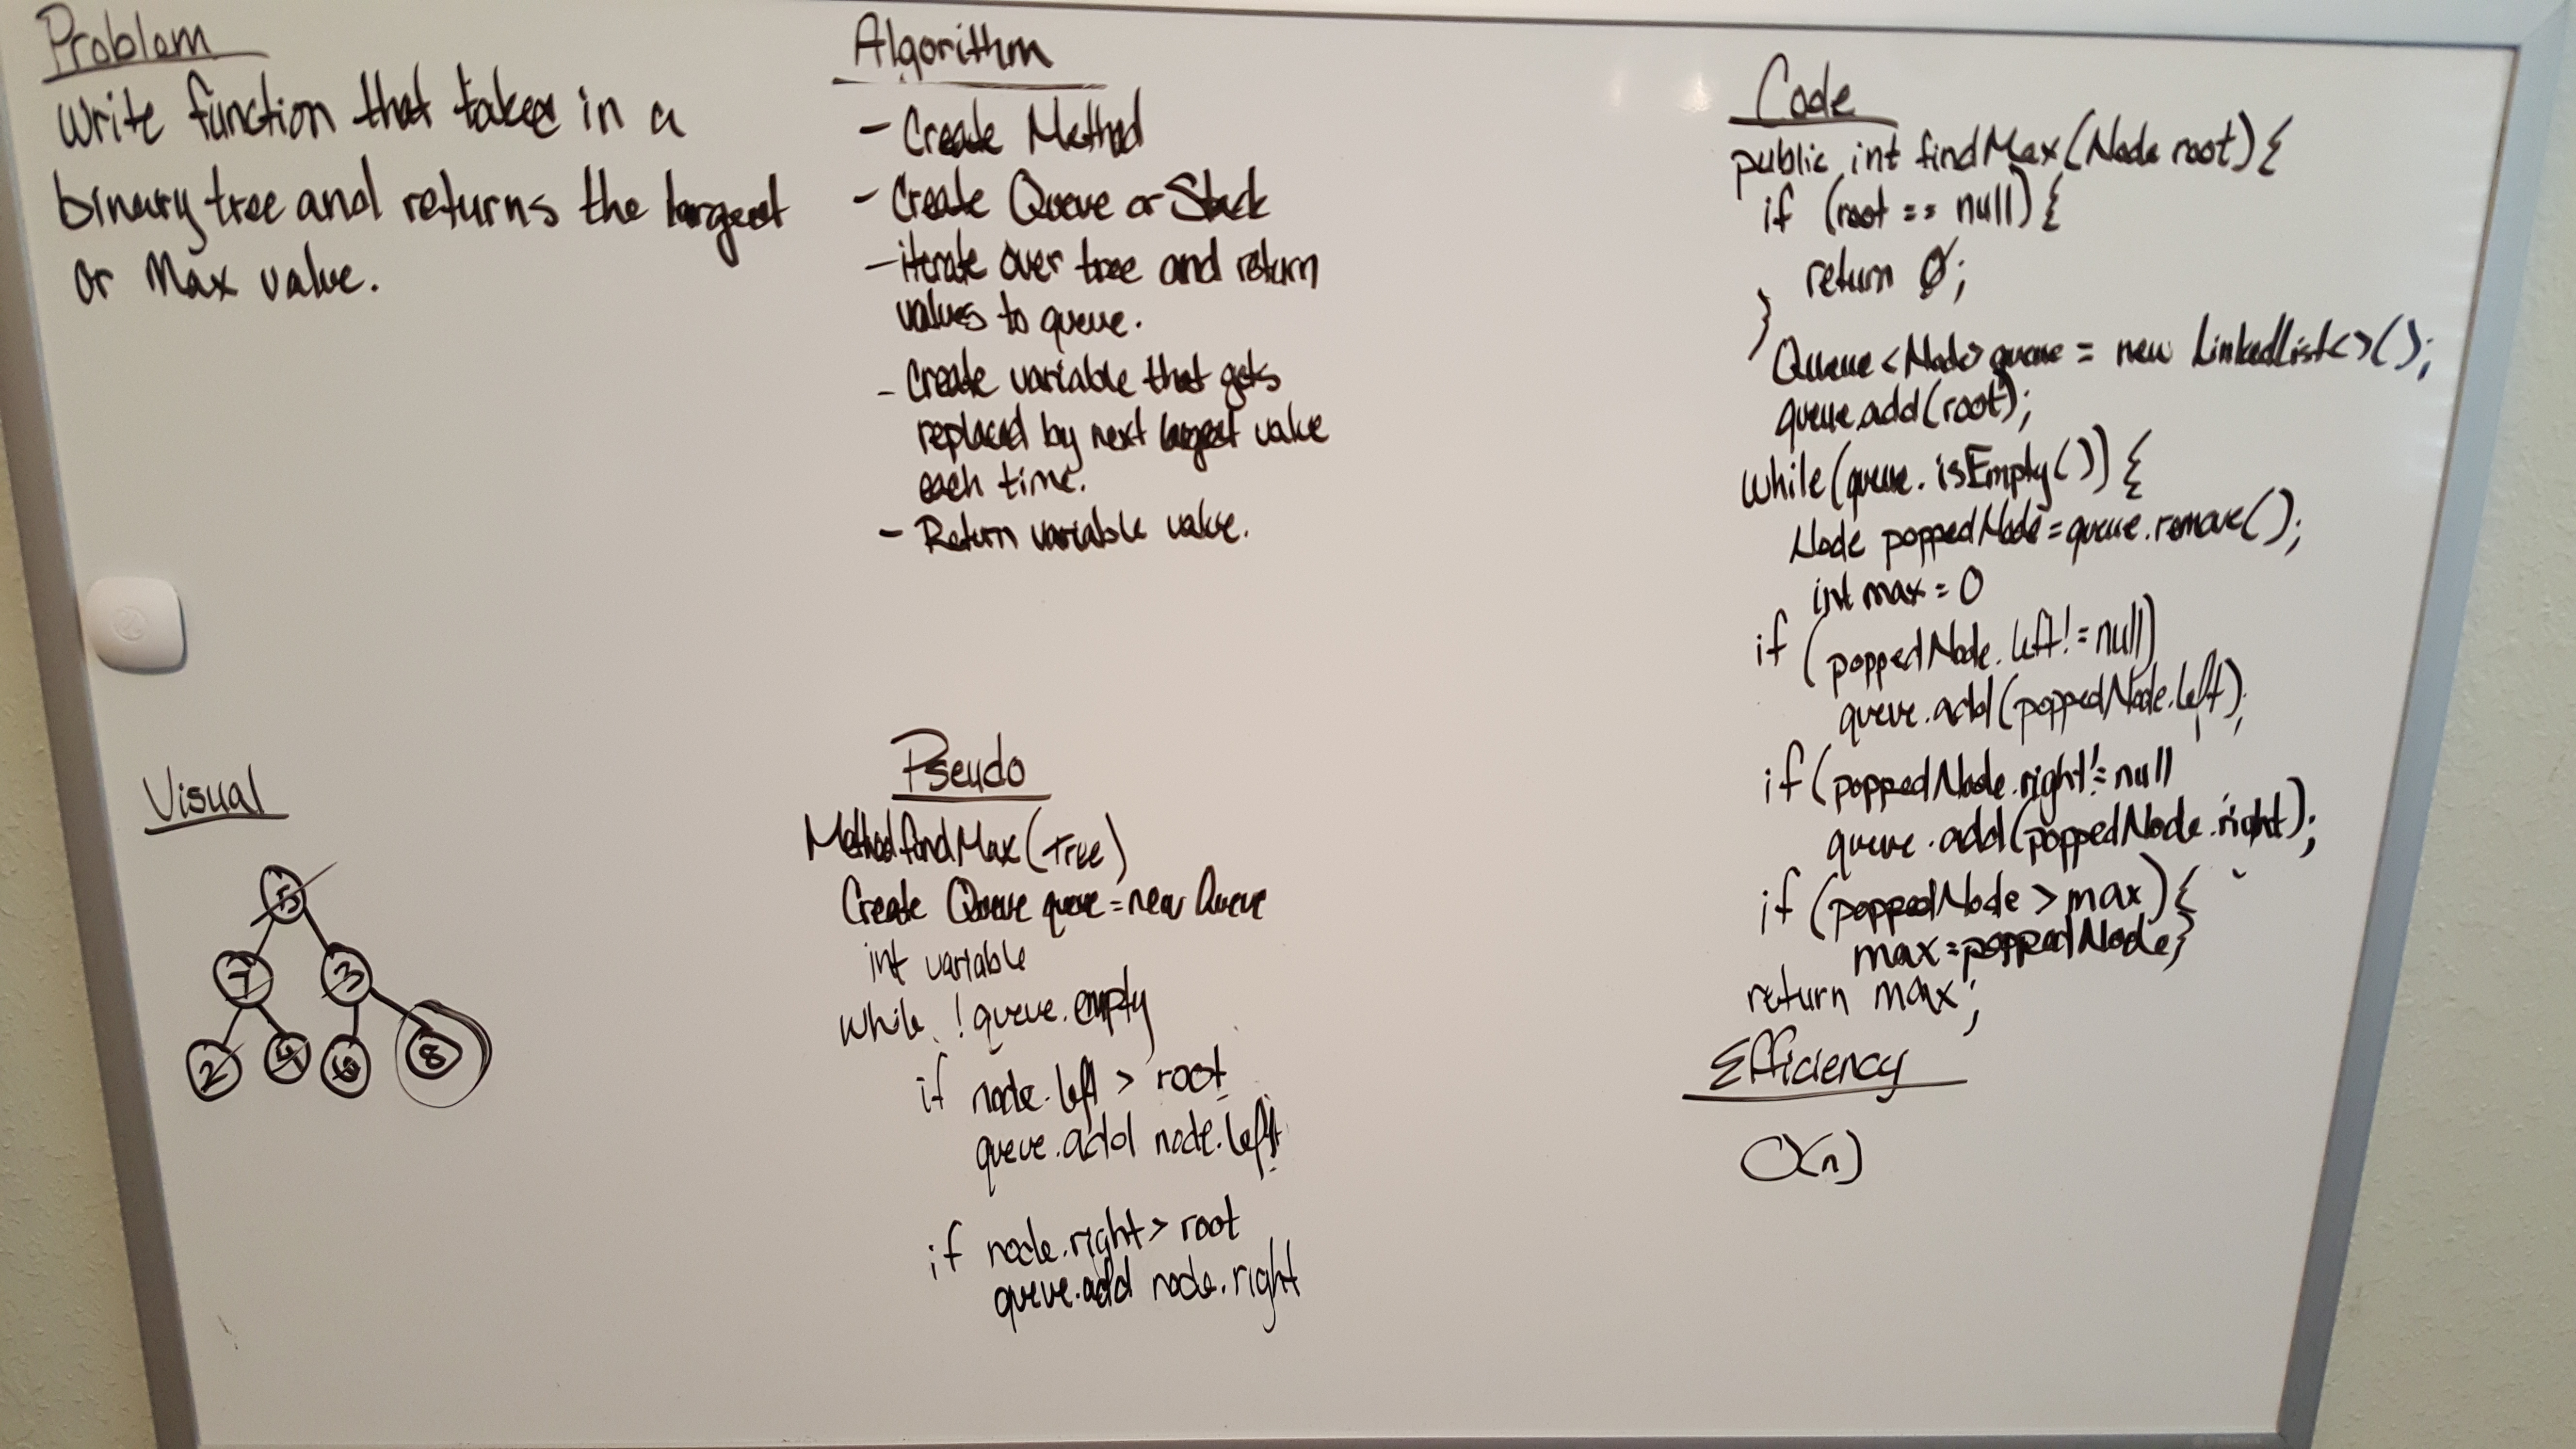 Problem
Write function that takes in a
binary tree and returns the largest
or Max value.
Visual
5
7 3
2 4 6 8
Algorithm
- Create Method
- Create Queue or Stack
- iterate over tree and return
values to queue.
- Create variable that gets
replaced by next largest value
each time.
- Return variable value.
Pseudo
Method findMax(tree)
Create Queue queue = new Queue
int variable
while !queue.empty
if node.left > root
queue.add node.left
if node.right > root
queue.add node.right
Code
public int findMax(Node root){
if (root == null){
return 0;
}
Queue<Node> queue = new LinkedList<>();
queue.add(root);
while(queue.isEmpty()){
Node poppedNode = queue.remove();
int max = 0
if (poppedNode.left != null)
queue.add(poppedNode.left);
if (poppedNode.right != null
queue.add(poppedNode.right);
if (poppedNode > max){
max = poppedNode}
return max;
Efficiency
O(n)